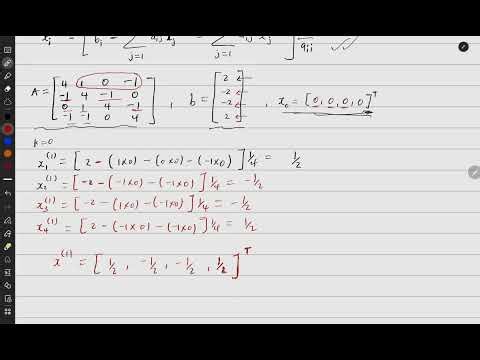 x_i = [ b_i − Σ_{j=1} a_ij x_j − Σ_{j=1} a_ij x_j ] 1/a_ii
A = [ 4 1 0 -1 ; -1 4 -1 0 ; 0 1 4 -1 ; -1 -1 0 4 ] , b = [ 2 ; -2 ; -2 ; 2 ] , x_0 = [0, 0, 0, 0]^T
k=0
x_1^(1) = [ 2 - (1x0) - (0x0) - (-1x0) ] 1/4 = 1/2
x_2^(1) = [ -2 - (-1x0) - (-1x0) ] 1/4 = -1/2
x_3^(1) = [ -2 - (1x0) - (-1x0) ] 1/4 = -1/2
x_4^(1) = [ 2 - (-1x0) - (-1x0) ] 1/4 = 1/2
x^(1) = [ 1/2 , -1/2 , -1/2 , 1/2 ]^T